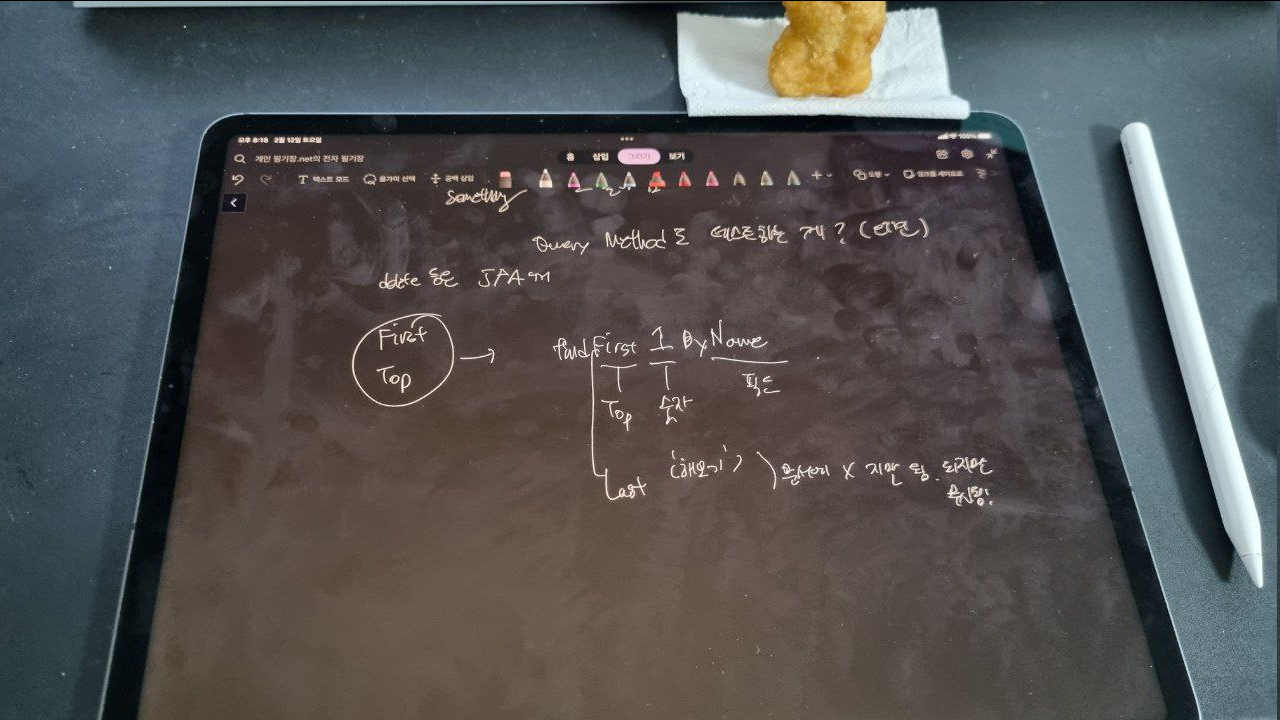 오후 8:18 2월 12일 토요일
개인 필기장.net의 전자 필기장
홈 삽입 그리기 보기
텍스트 모드 올가미 선택 공백 삽입 도형
Something
Query Method도 테스트하는 게? (안면)
delete 등은 JPA
First
Top
find First 1 By Name
Top 숫자 필드
Last 문서에 X 지만 됨. 되지만